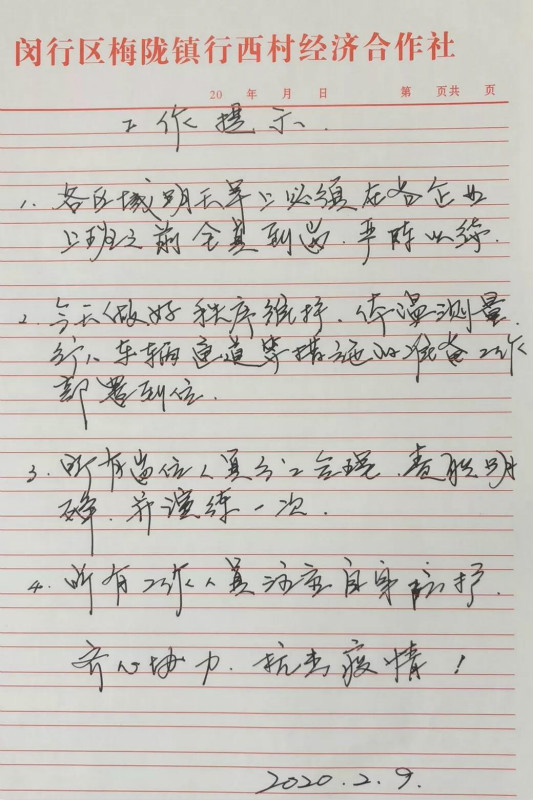 闵行区梅陇镇行西村经济合作社
20 年 月 日 第 页共 页
工作提示
1. 各区域明天早上必须在各企业
上班之前全员到岗,严阵以待.
2. 今天做好秩序维持、体温测量、
行人车辆通道等措施的准备工作
部署到位.
3. 所有岗位人员分工合理,责职明
确,并演练一次.
4. 所有工作人员注意自身防护.
齐心协力,抗击疫情!
2020.2.9.